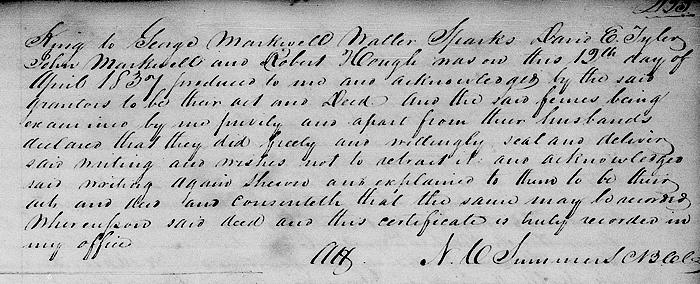 King to George Markwell Waller Sparks David E. Tyler
John Markwell and Robert Hough was on this 12th day of
April 1837 produced to me and acknowledged by the said
grantors to be their act and Deed And the said femes being
examined by me privily and apart from their husbands
declared that they did freely and willingly seal and deliver
said writing and wishes not to retract it and acknowledged
said writing again shewn and explained to them to be their
act and deed and consenteth that the same may be recorded
Whereupon said deed and this certificate is truly recorded in
my office
Att. N. C Summers C B C C